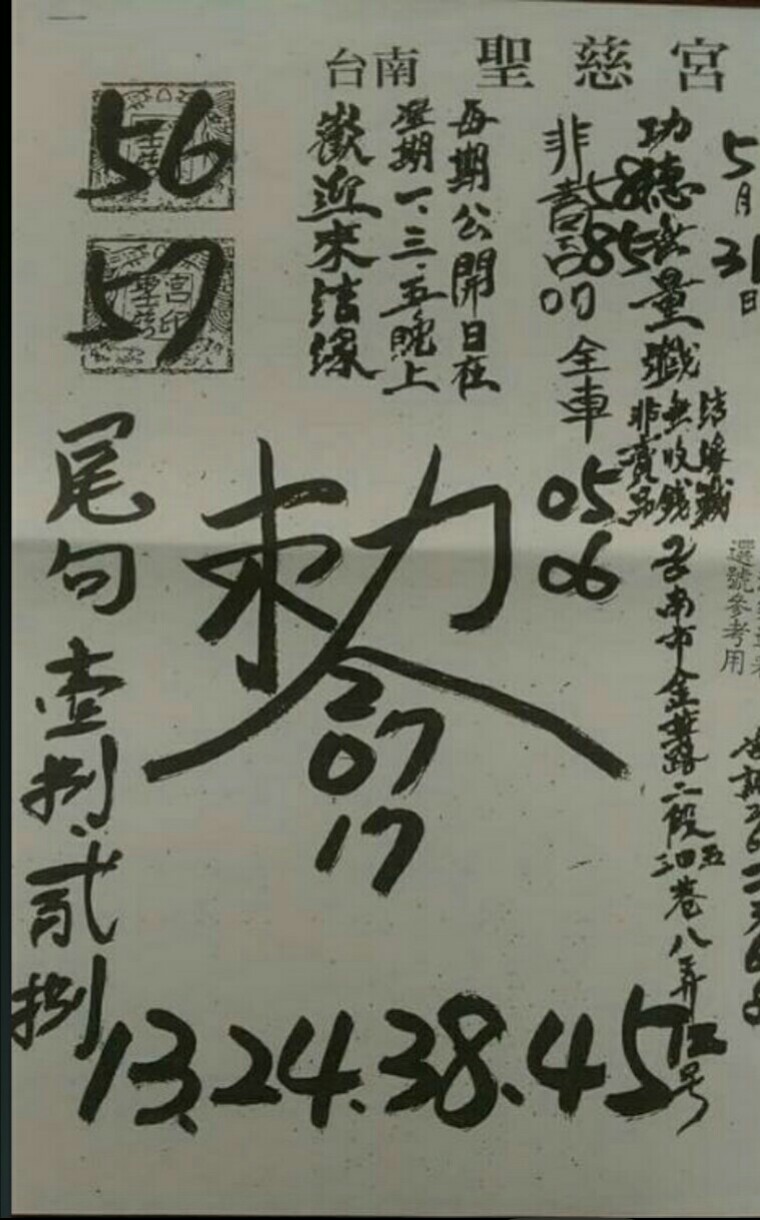 台南 聖慈宮
5月31日
功德無量
58
85
結緣籤
無收錢
非賣品
選號參考用
台南市金華路二段
巷八弄
号
全車
05
06
每期公開日在
星期一、三、五晚上
歡迎來結緣
56
57
敕
27
07
17
尾句 壹捌.貳捌
13、24、38、45